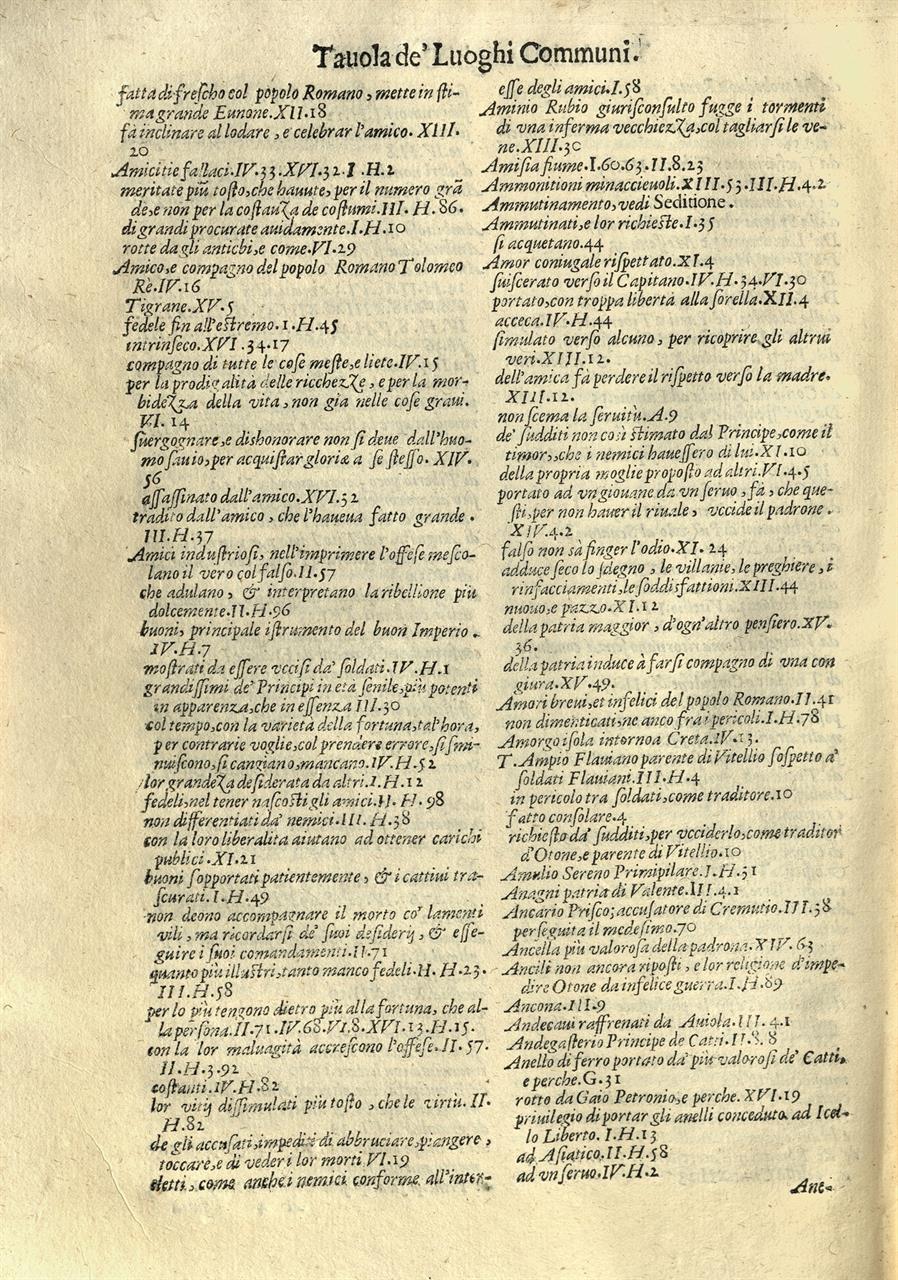 Tauola de' Luoghi Communi.
fatta di frescho col popolo Romano, mette in sti-
ma grande Eunone. XII. 18
fà inclinare al lodare, e celebrar l'amico. XIII.
20
Amicitie fallaci. IV. 33. XVI. 32. I. H. 2
meritate più tosto, che hauute, per il numero grā
de, e non per la costauza de costumi. III. H. 86.
di grandi procurate auidamente. I. H. 10
rotte da gli antichi, e come. VI. 29
Amico, e compagno del popolo Romano Tolomeo
Rè. IV. 16
Tigrane. XV. 5
fedele fin all'estremo. I. H. 45
intrinseco. XVI. 34. 17
compagno di tutte le cose meste, e liete. IV. 15
per la prodigalità delle ricchezze, e per la mor-
bidezza della vita, non gia nelle cose graui.
VI. 14
suergognare, e dishonorare non si deue dall'huo-
mo sauio, per acquistar gloria a se stesso. XIV.
56
assassinato dall'amico. XVI. 32
tradito dall'amico, che l'haueua fatto grande.
III. H. 37
Amici industriosi, nell'imprimere l'offese mesco-
lano il vero col falso. II. 57
che adulano, & interpretano la ribellione più
dolcemente. II. H. 96
buoni, principale istrumento del buon Imperio.
IV. H. 7
mostrati da essere vccisi da' soldati. IV. H. 1
grandissimi de' Principi in età senile, più potenti
in apparenza, che in essenza III. 30
col tempo, con la varietà della fortuna, tal'hora,
per contrarie voglie, col prendere errore, si smi-
nuiscono, si cangiano, mancano. IV. H. 52
lor grandeza desiderata da altri. I. H. 12
fedeli, nel tener nascosti gli amici. II. H. 98
non differentiati da' nemici. III. H. 38
con la loro liberalità aiutano ad ottener carichi
publici. XI. 21
buoni sopportati patientemente, & i cattiui tra-
scurati. I. H. 49
non deono accompagnare il morto co' lamenti
vili, ma ricordarsi de' suoi desiderij, & esse-
guire i suoi comandamenti. II. 71
quanto più illustri, tanto manco fedeli. II. H. 23.
III. H. 58
per lo più tengono dietro più alla fortuna, che al-
la persona. II. 71. IV. 68. VI. 8. XVI. 13. H. 15.
con la lor maluagità accrescono l'offese. II. 57.
II. H. 3. 92
costanti. IV. H. 82
lor vitij dissimulati più tosto, che le virtù. II.
H. 82
de gli accusati, impediti di abbruciare, piangere,
toccare, e di veder i lor morti VI. 19
eletti, come anche i nemici conforme all'inter-
esse degli amici. I. 58
Aminio Rubio giurisconsulto fugge i tormenti
di vna inferma vecchiezza, col tagliarsi le ve-
ne. XIII. 30
Amisia fiume. I. 60. 63. II. 8. 23
Ammonitioni minacciевoli. XIII. 53. III. H. 4. 2
Ammutinamento, vedi Seditione.
Ammutinati, e lor richieste. I. 35
si acquetano. 44
Amor coniugale rispettato. XI. 4
suiscerato verso il Capitano. IV. H. 34. VI. 30
portato, con troppa libertà alla sorella. XII. 4
acceca. IV. H. 44
simulato verso alcuno, per ricoprire gli altrui
veri. XIII. 12.
dell'amica fà perdere il rispetto verso la madre.
XIII. 12.
non scema la seruitù. A. 9
de' sudditi non così stimato dal Principe, come il
timor, che i nemici hauessero di lui. XI. 10
della propria moglie proposto ad altri. VI. 4. 5
portato ad vn giouane da vn seruo, fà, che que-
sti, per non hauer il riuale, vccide il padrone.
XIV. 4. 2
falso non sà finger l'odio. XI. 24
adduce seco lo sdegno, le villanie, le preghiere, i
rinfacciamenti, le soddisfattioni. XIII. 44
nuouo, e pazzo. XI. 12
della patria maggior, d'ogn'altro pensiero. XV.
36.
della patria induce à farsi compagno di vna con
giura. XV. 49.
Amori breui, et infelici del popolo Romano. II. 41
non dimenticati, ne anco fra i pericoli. I. H. 78
Amorgo isola intorno a Creta. IV. 13.
T. Ampio Flauiano parente di Vitellio sospetto a'
soldati Flauiani. III. H. 4
in pericolo tra soldati, come traditore. 10
fatto consolare. 4
richiesto da' sudditi, per vcciderlo, come traditor
d'Otone, e parente di Vitellio. 10
Amulio Sereno Primipilare. I. H. 31
Anagni patria di Valente. III. 4. 1
Ancario Prisco; accusatore di Cremutio. III. 38
perseguita il medesimo. 70
Ancella più valorosa della padrona. XIV. 63
Ancili non ancora riposti, e lor religione d'impe-
dire Otone da infelice guerra. I. H. 89
Ancona. III. 9
Andecaui raffrenati da Auiola. III. 4. 1
Andegasterio Principe de Catti. II. 8. 8
Anello di ferro portato da' più valorosi de' Catti,
e perche. G. 31
rotto da Gaio Petronio, e perche. XVI. 19
priuilegio di portar gli anelli conceduto ad Icel-
lo Liberto. I. H. 13
ad Asiatico. II. H. 58
ad vn seruo. IV. H. 2
Ane-